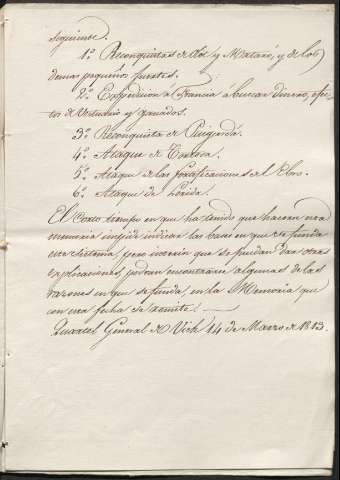 seguiente.
1.º Reconquistas de Olot y Mataró, y de los
demas pequeños fuertes.
2.º Expedicion a Francia a buscar dinero, efec-
tos de vestuario y ganados.
3.º Reconquista de Puigcerda.
4.º Ataque de
5.º Ataque de las fortificaciones del Ebro.
6.º Ataque de Lerida.
El corto tiempo en que ha tenido que hacerse una
memoria impide indicar las bases en que se funda
este sistema, pero interin que se puedan dar otras
explicaciones, podran encontrarse algunas de las
razones en que se funda, en la Memoria que
con esta fecha se remite.
Quartel General de Vich 14 de Marzo de 1813.